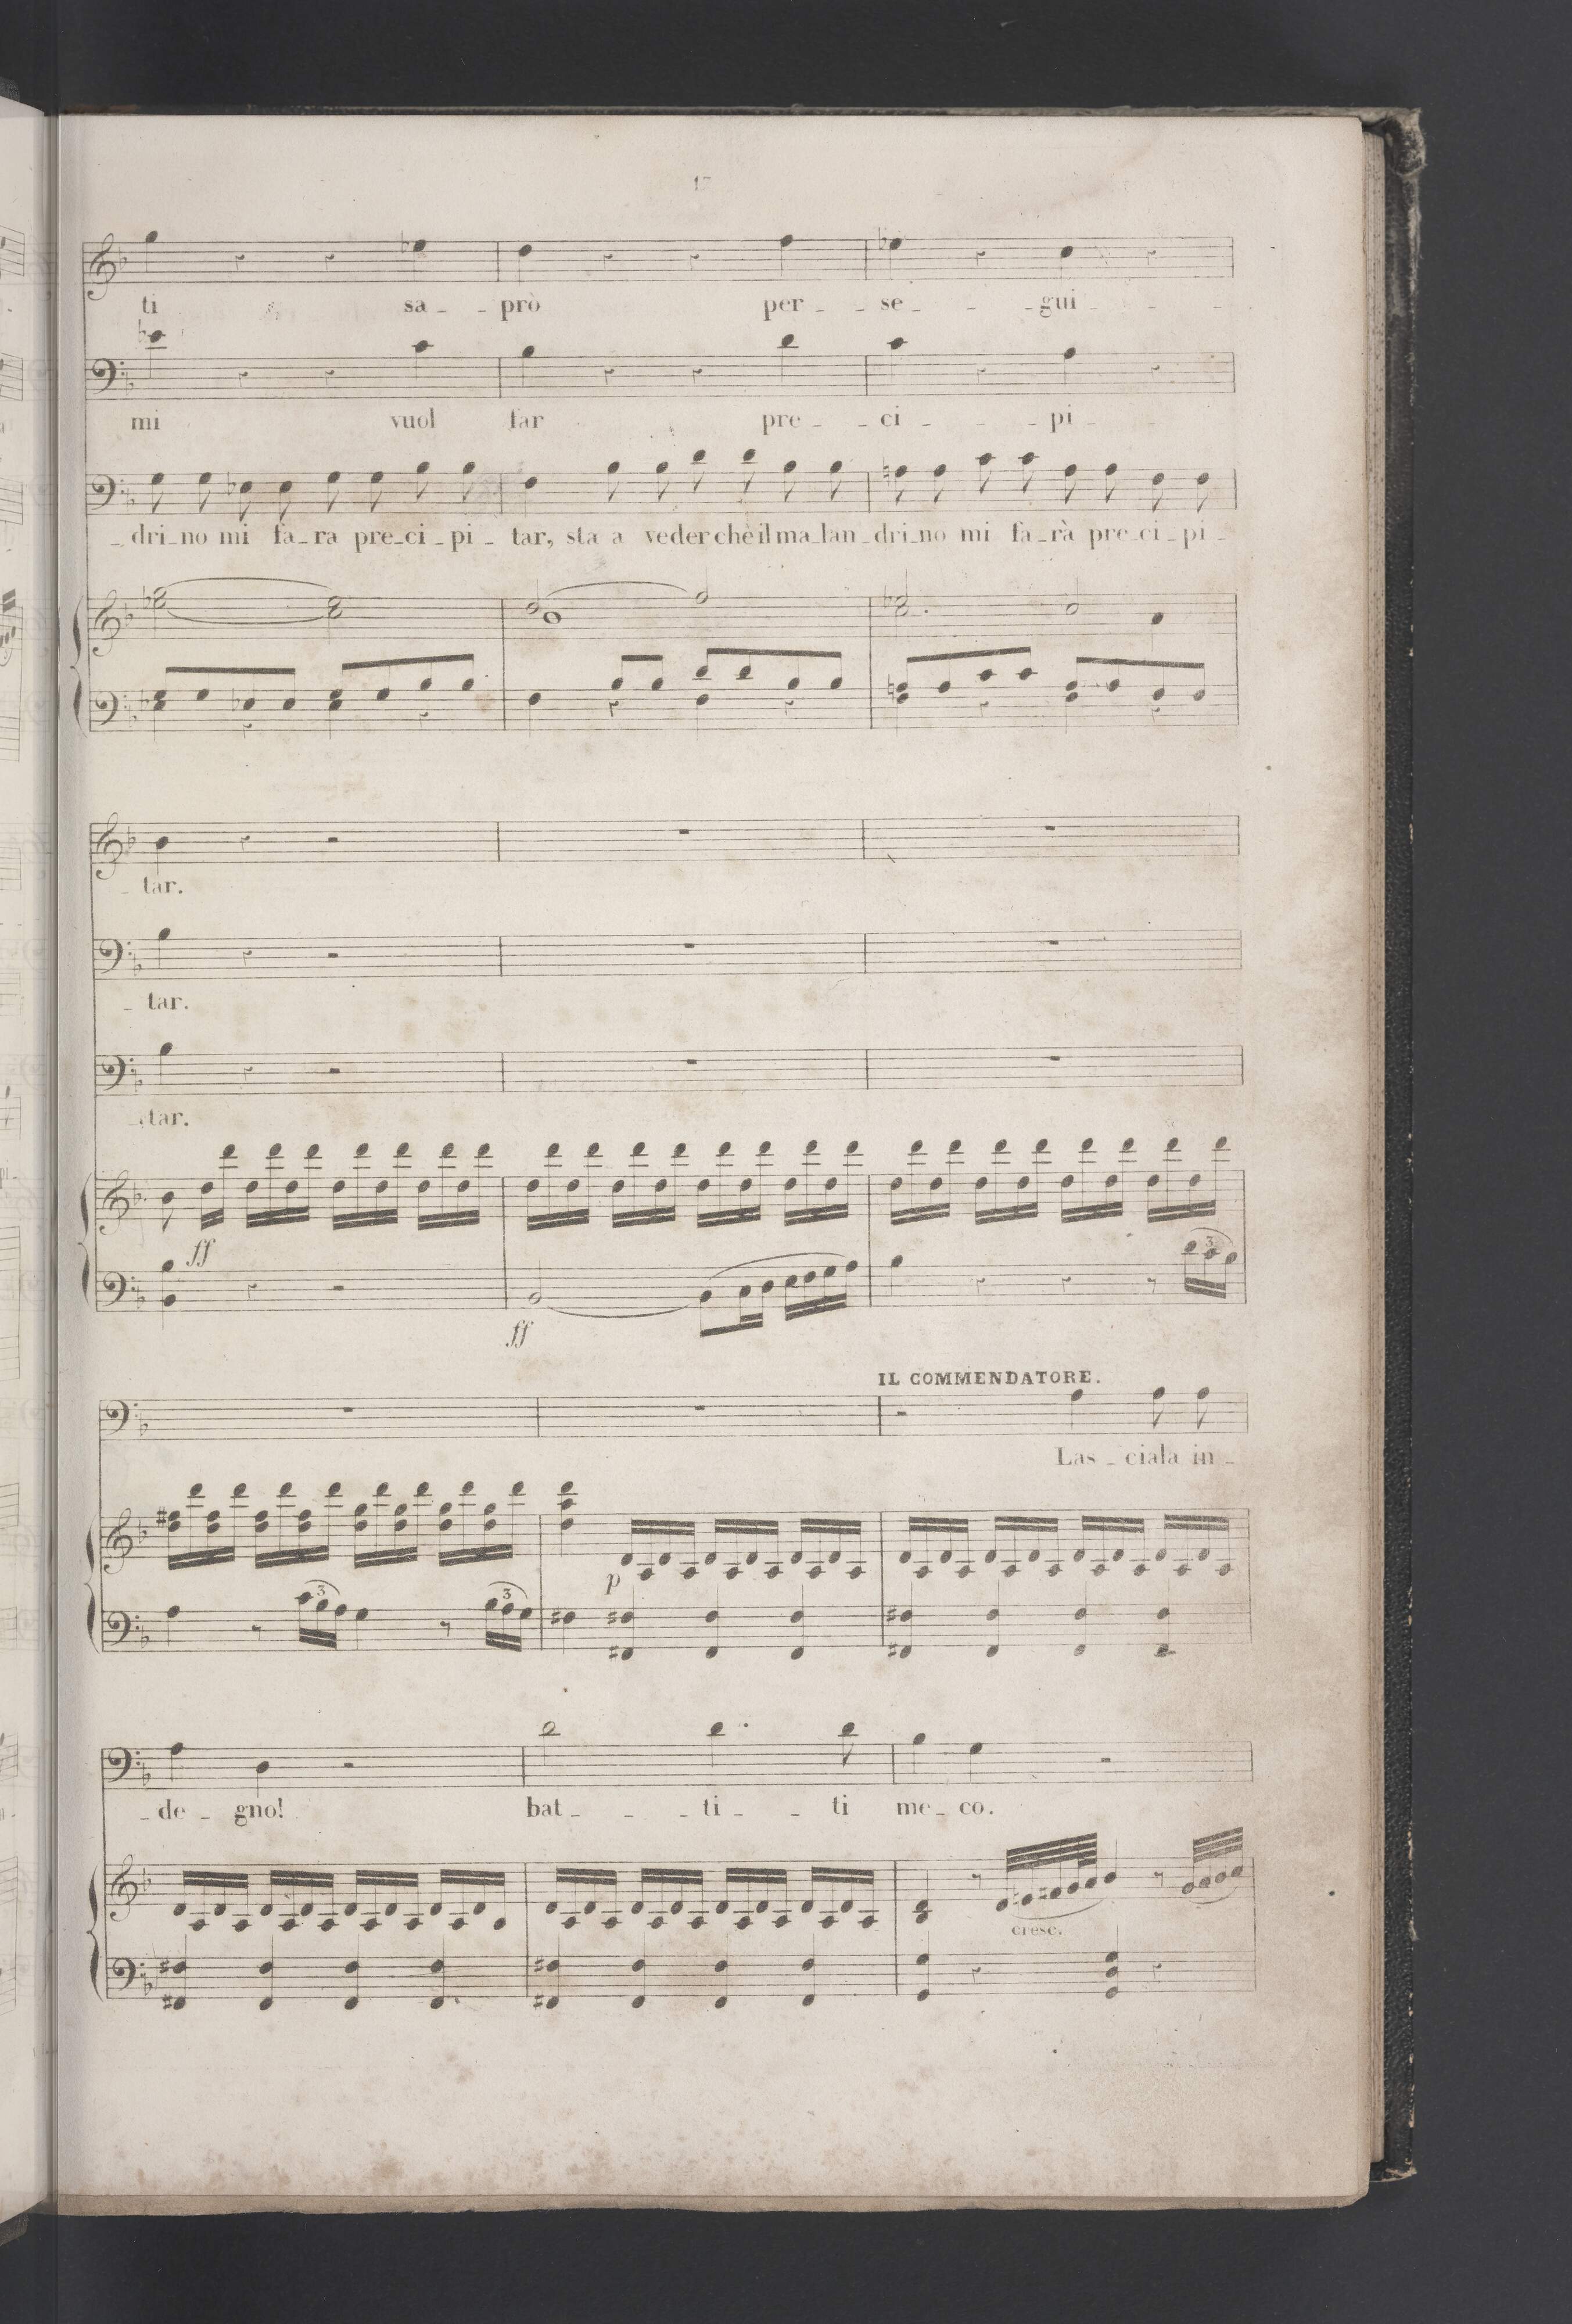 17
ti sa - - prò per - - se - - - gui - - -
mi vuol far pre - - ci - - - pi - -
- dri - no mi fa - ra pre - ci - pi - tar, sta a veder chè il ma - lan - dri - no mi fa - rà pre - ci - pi -
- tar.
- tar.
- tar.
ff
ff
3
IL COMMENDATORE.
Las - ciala in -
3 3
p
- de - gno! bat - - - ti - - ti me - co.
cresc.